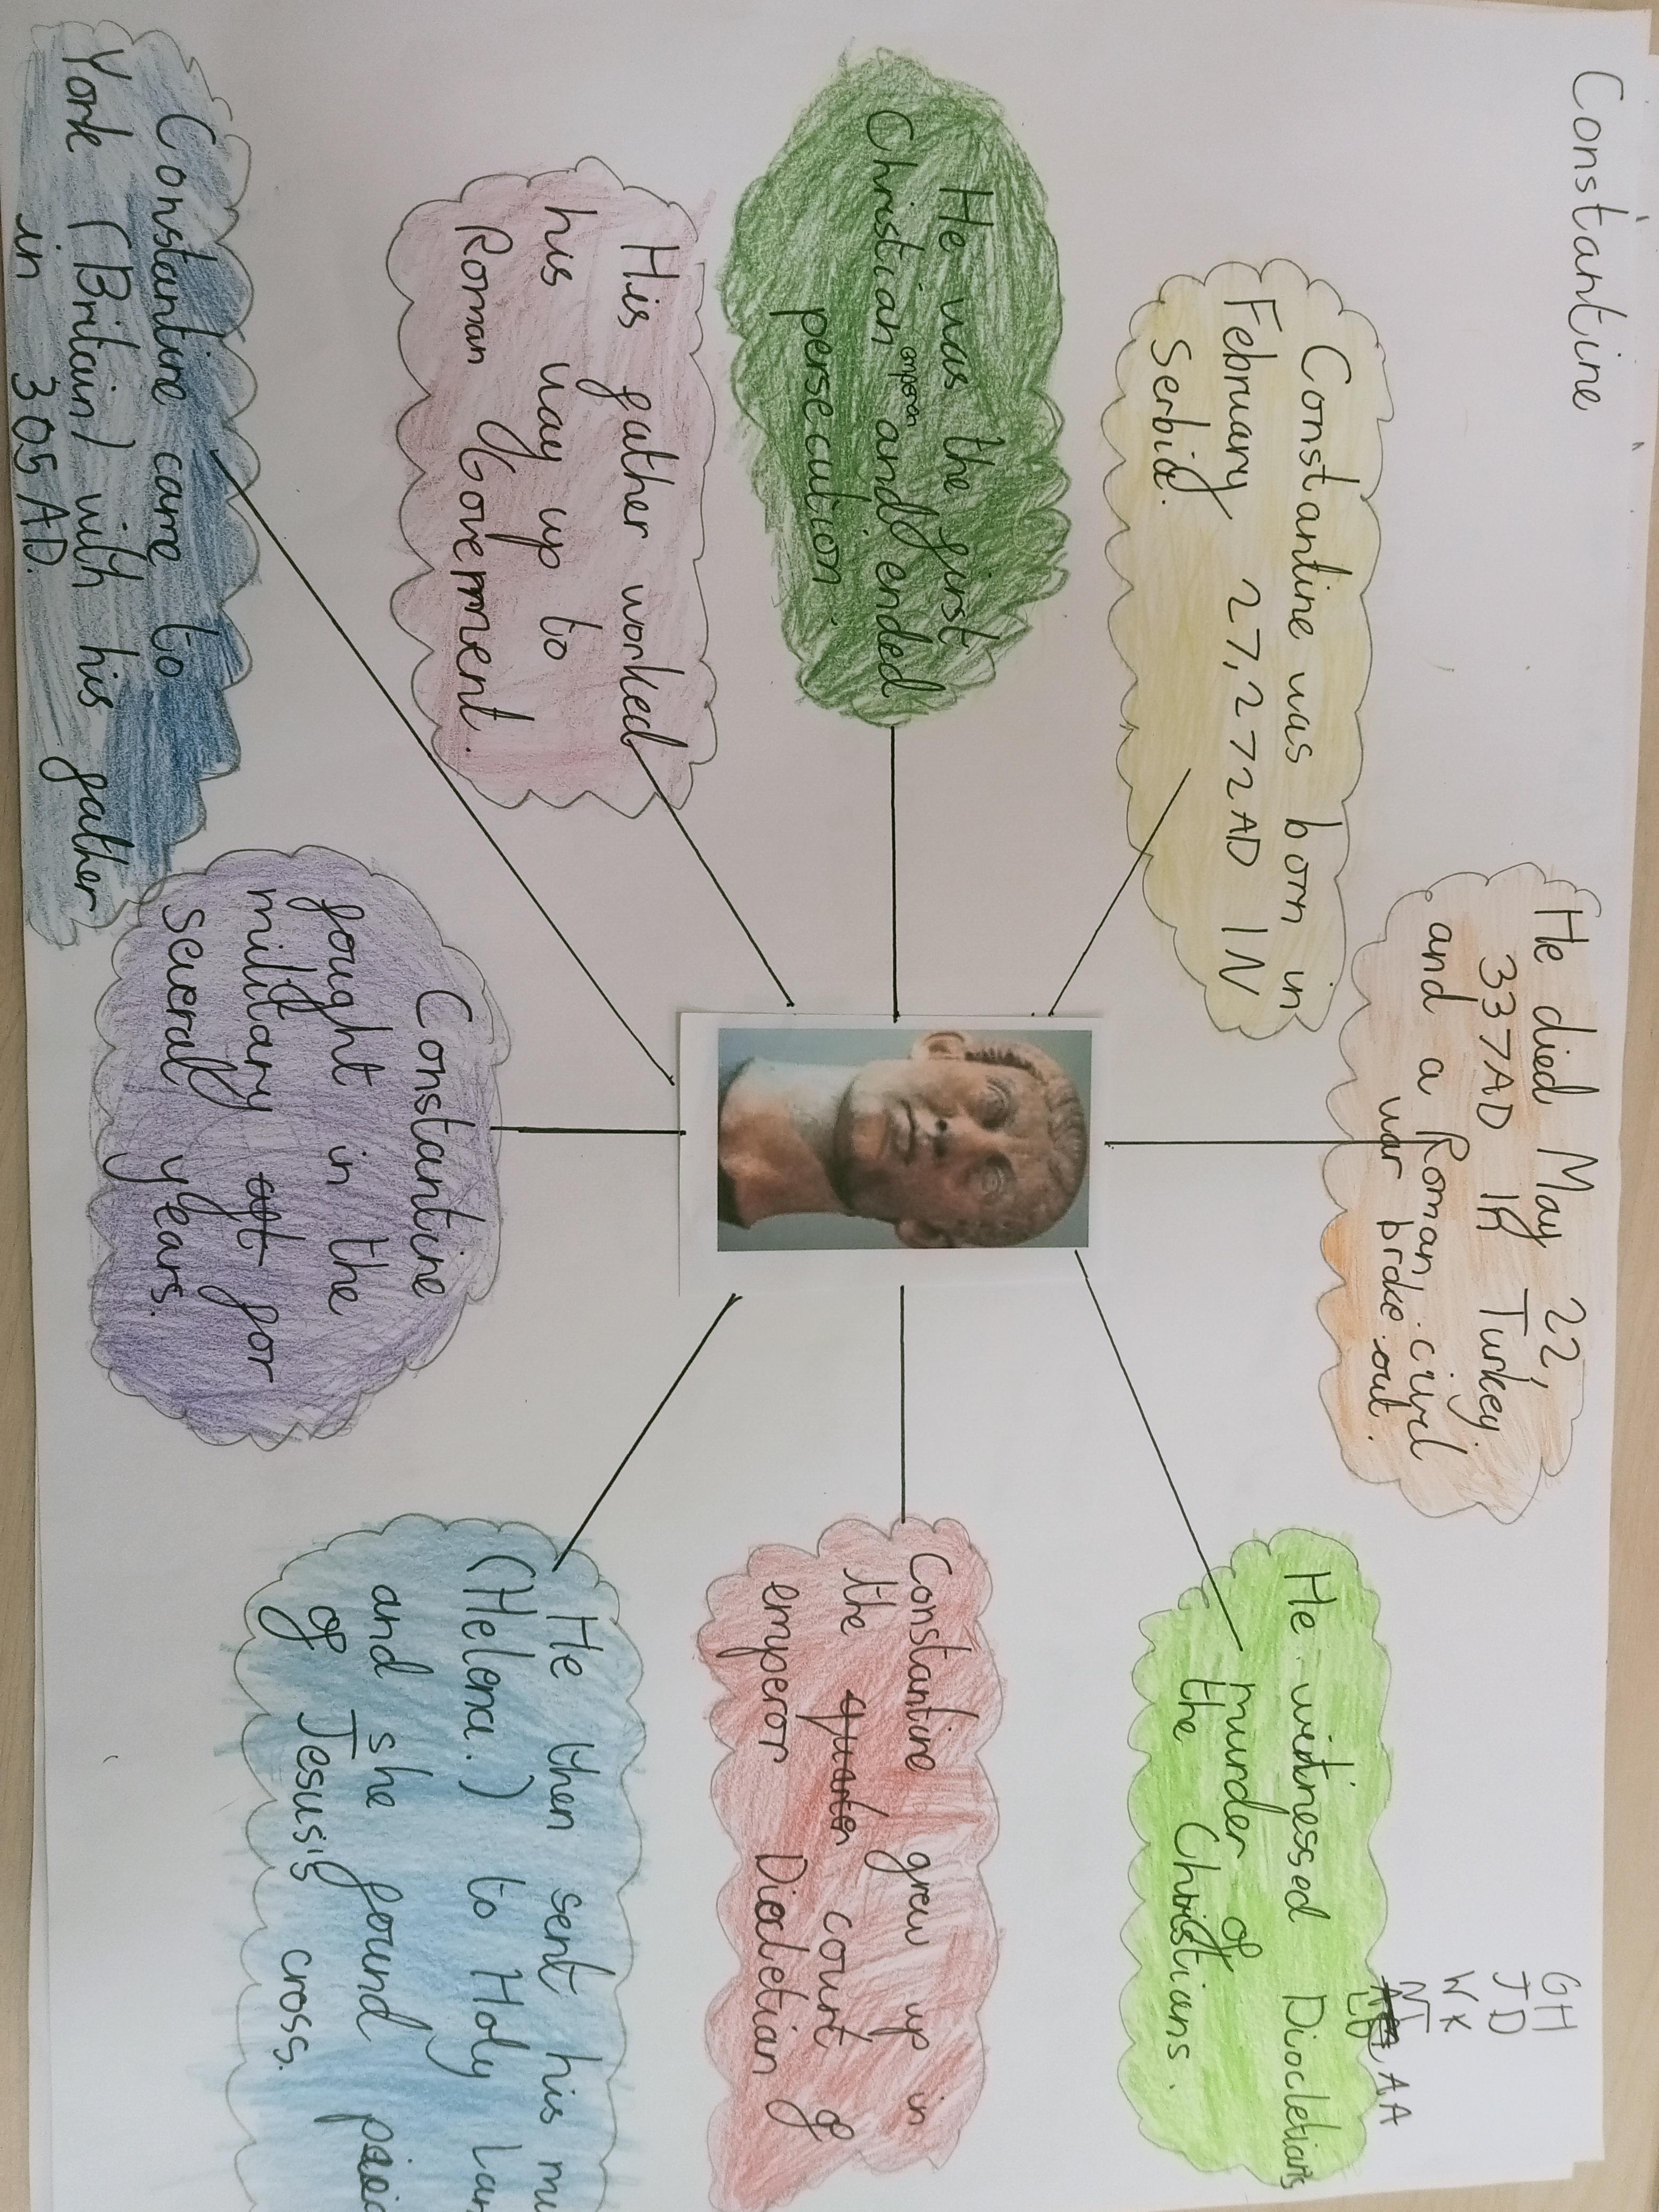 Constantine
GH
JD
WK
NT
LB AA
He died May 22,
337AD IN Turkey.
and a Roman civil
war broke out.
Constantine was born in
February 27, 272AD IN
Serbia.
He witnessed Diocletians
murder of
the Christians.
He was the first
Christian emperor and ended
persecution.
Constantine grew up in
the court of
emperor Diocletian
His father worked
his way up to
Roman Goverment.
He then sent his
(Helena.) to Holy
and she found
of Jesus's cross.
Constantine
fought in the
military for
several years.
Constantine came to
York (Britain) with his father
in 305AD.